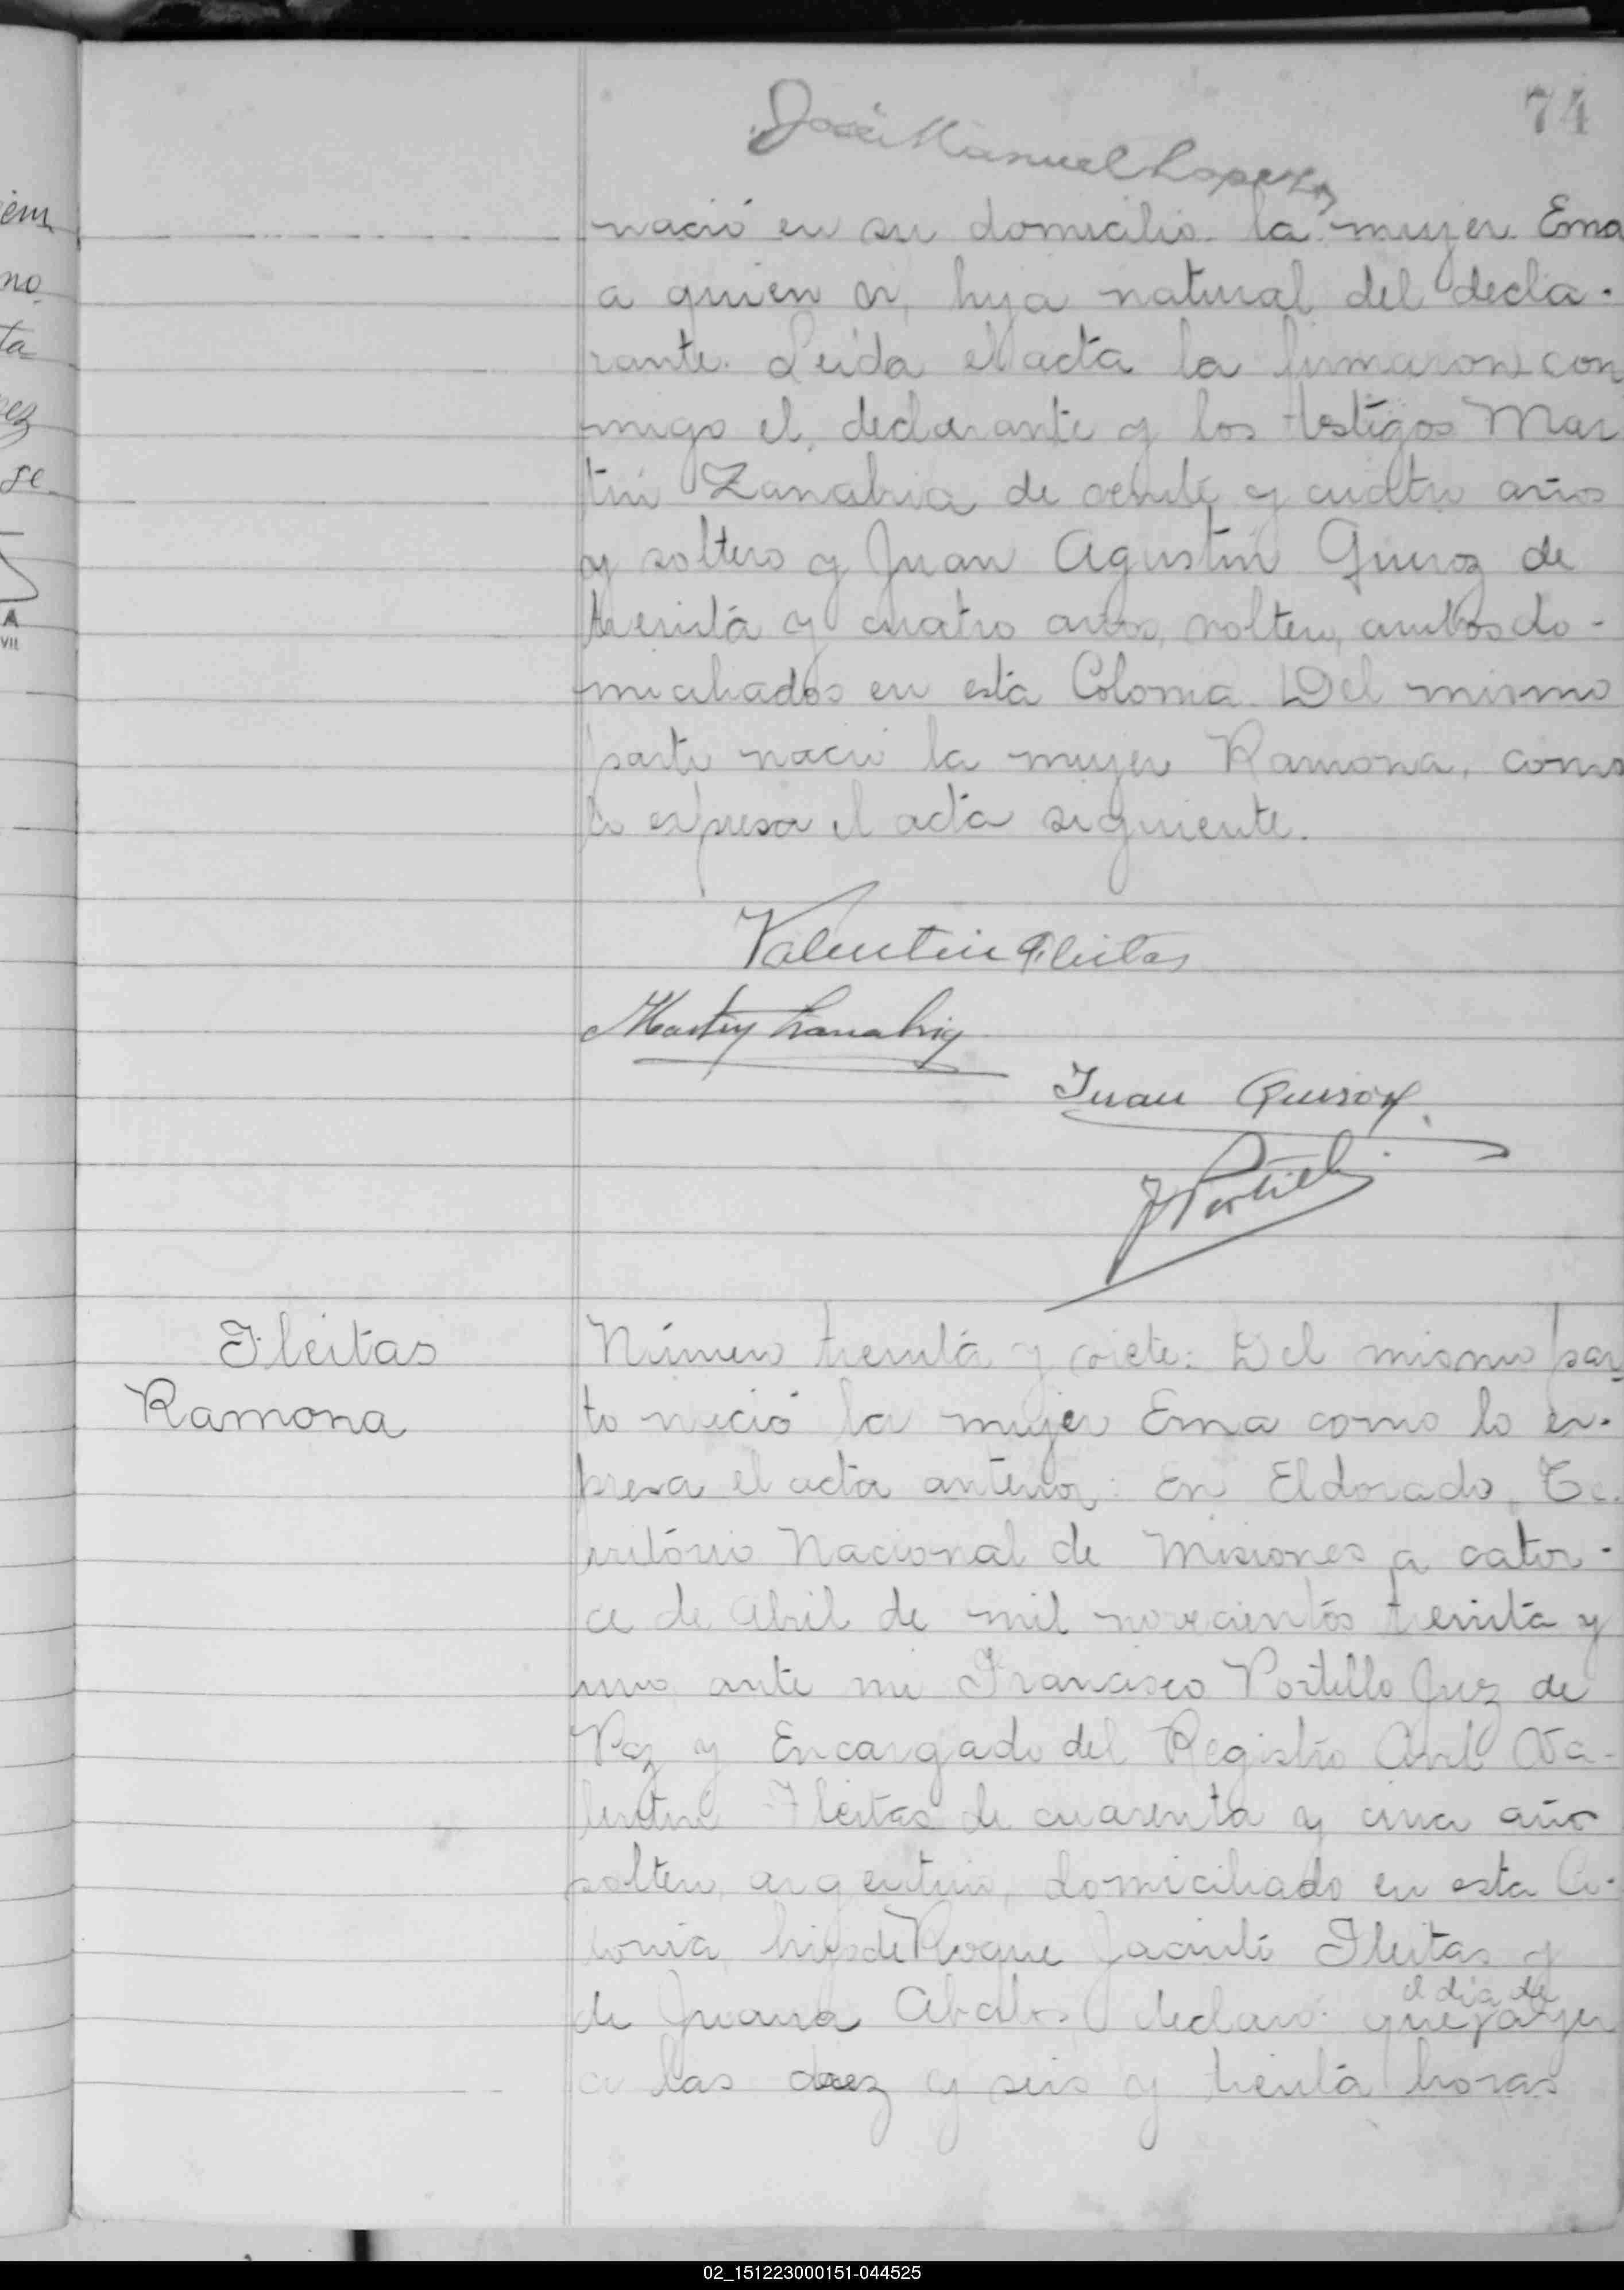 74
José Manuel Lopez
nació en su domicilio la mujer Ema
a quien vi, hija natural del decla-
rante. Leida el acta la firmaron con
migo el declarante y los testigos Mar
tin Zanabria de veinte y cuatro años
y soltero y Juan Agustin Quiroz de
treinta y cuatro años, soltero, ambos do-
miciliados en esta Colonia. Del mismo
parto nació la mujer Ramona, como
lo expresa el acta siguiente.
Valentin Fleitas
Martin Zanabria
Juan Quiroz
F Portillo
Fleitas
Ramona
Número treinta y siete: Del mismo par
to nació la mujer Ema como lo ex-
presa el acta anterior: En Eldorado, Te-
rritório Nacional de Misiones a cator-
ce de Abril de mil novecientos treinta y
uno ante mi Francisco Portillo Juez de
Paz y Encargado del Registro Civil Va-
lentin Fleitas de cuarenta y cinco año
soltero, argentino, domiciliado en esta Co-
lonia, hijo de Roque Jacinto Fleitas y
el dia de
de Juana Abalos declaró: que ayer
a las diez y seis y treinta horas
em
no
ta
pez
se
A
VII
02_151223000151-044525